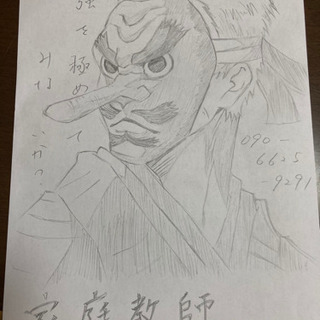 強を極めて
みないか？
090-
6625
-9291
家庭教師